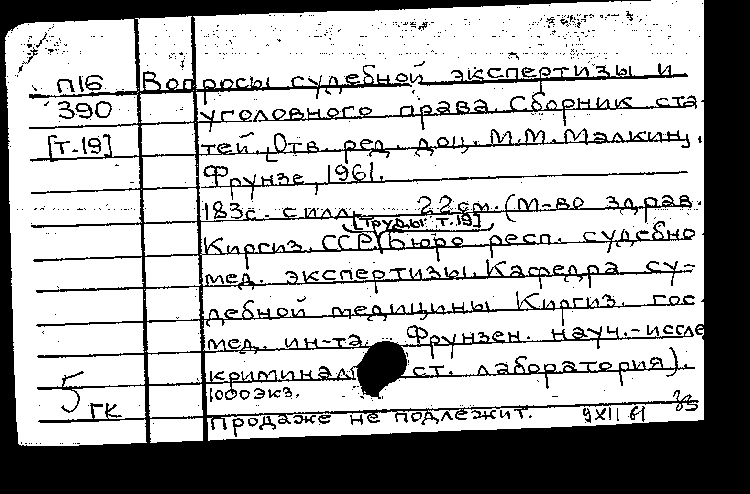 П16 Вопросы судебной экспертизы и
390 уголовного права. Сборник ста-
[т.19] тей. [Отв. ред. доц. М.М. Малкин].
Фрунзе, 1961.
183с. с илл. 22см. (М-во здрав.
[Труды т.19]
Киргиз. ССР. Бюро респ. судебно-
мед. экспертизы. Кафедра су-
дебной медицины Киргиз. гос.
мед. ин-та. Фрунзен. науч.-иссле
криминал ст. лаборатория).
1000 экз.
5 гк Продаже не подлежит. 9 XII 61